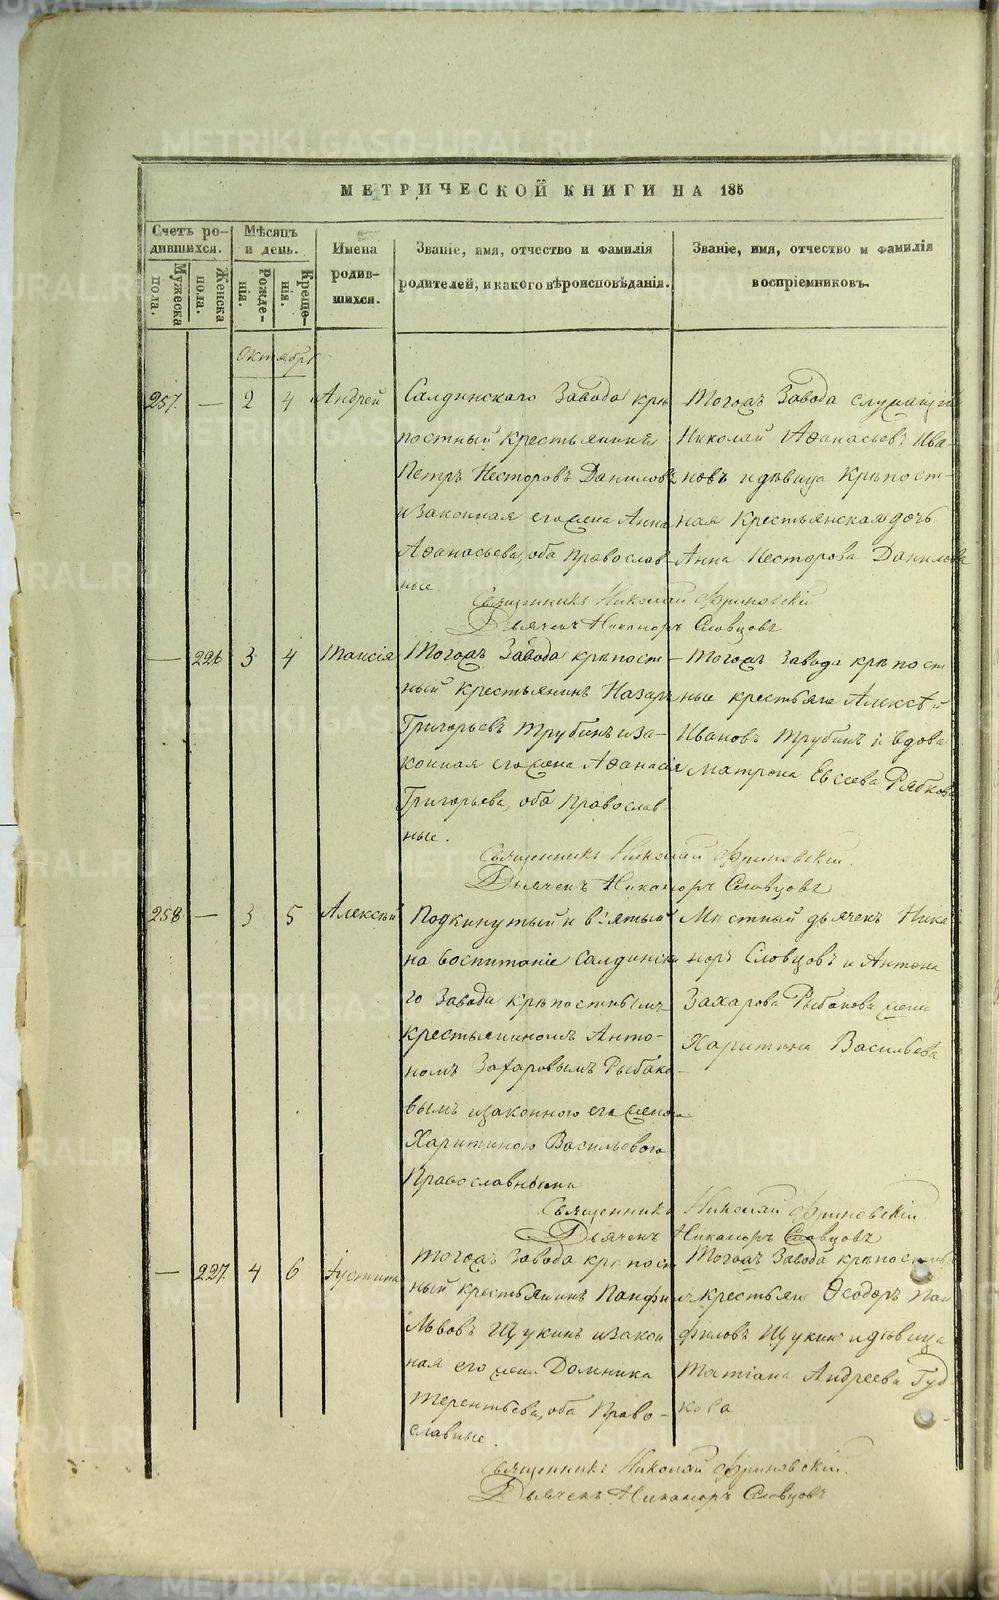 МЕТРИЧЕСКОЙ КНИГИ НА 185
Счетъ ро-
дившихся.
Мужеска
пола.
Женска
пола.
Мѣсяцъ
и день.
Рожде-
нія.
Креще-
нія.
Имена
родив-
шихся.
Званіе, имя, отчество и фамилія
родителей, и какого вѣроисповѣданія.
Званіе, имя, отчество и фамилія
воспріемниковъ.
Октябрь
257. — 2 4 Андрей
Салдинскаго Завода крѣ
постный крестьянинъ
Петръ Несторовъ Даниловъ
и законная его жена Анна
Афанасьева, оба православ-
ные
Тогожъ Завода служащій
Николай Афанасьевъ Ива-
новъ и дѣвица Крѣпост-
ная Крестьянская дочь
Анна Несторова Данилова
Священникъ Николай Фриновскій
Дьячекъ Никаноръ Словцовъ
— 226 3 4 Таисія
Тогожъ Завода крѣпост-
ный крестьянинъ Назаръ
Григорьевъ Трубинъ и за-
конная его жена Афанасія
Григорьева, оба православ-
ные.
Тогожъ Завода крѣпост
ные крестьяне Алексѣй
Ивановъ Трубинъ и вдова
Матрона Евсеева Рябкова
Священникъ Николай Фриновскій.
Дьячекъ Никаноръ Словцовъ
258 — 3 5 Алексѣй
Подкинутый и взятый
на воспитаніе Салдинска
го Завода крѣпостнымъ
крестьяниномъ Анто-
номъ Захаровымъ Рыбако-
вымъ и законною его женою
Харитиною Васильевою
Православными
Мѣстный дьячекъ Ника
норъ Словцовъ и Антона
Захарова Рыбакова жена
Харитина Васильева
Священникъ Николай Фриновскій
Дьячекъ Никаноръ Словцовъ
— 227. 4 6 Іустина
Тогожъ Завода крѣпост
ный крестьянинъ Панфилъ
Львовъ Щукинъ и закон
ная его жена Домника
Терентьева, оба Право-
славные.
Тогожъ Завода крѣпостные
крестьяне Ѳеодоръ Пан
филовъ Щукинъ и дѣвица
Татіана Андреева Гуд-
кова
Священникъ Николай Фриновскій.
Дьячекъ Никаноръ Словцовъ
METRIKI.GASO-URAL.RU